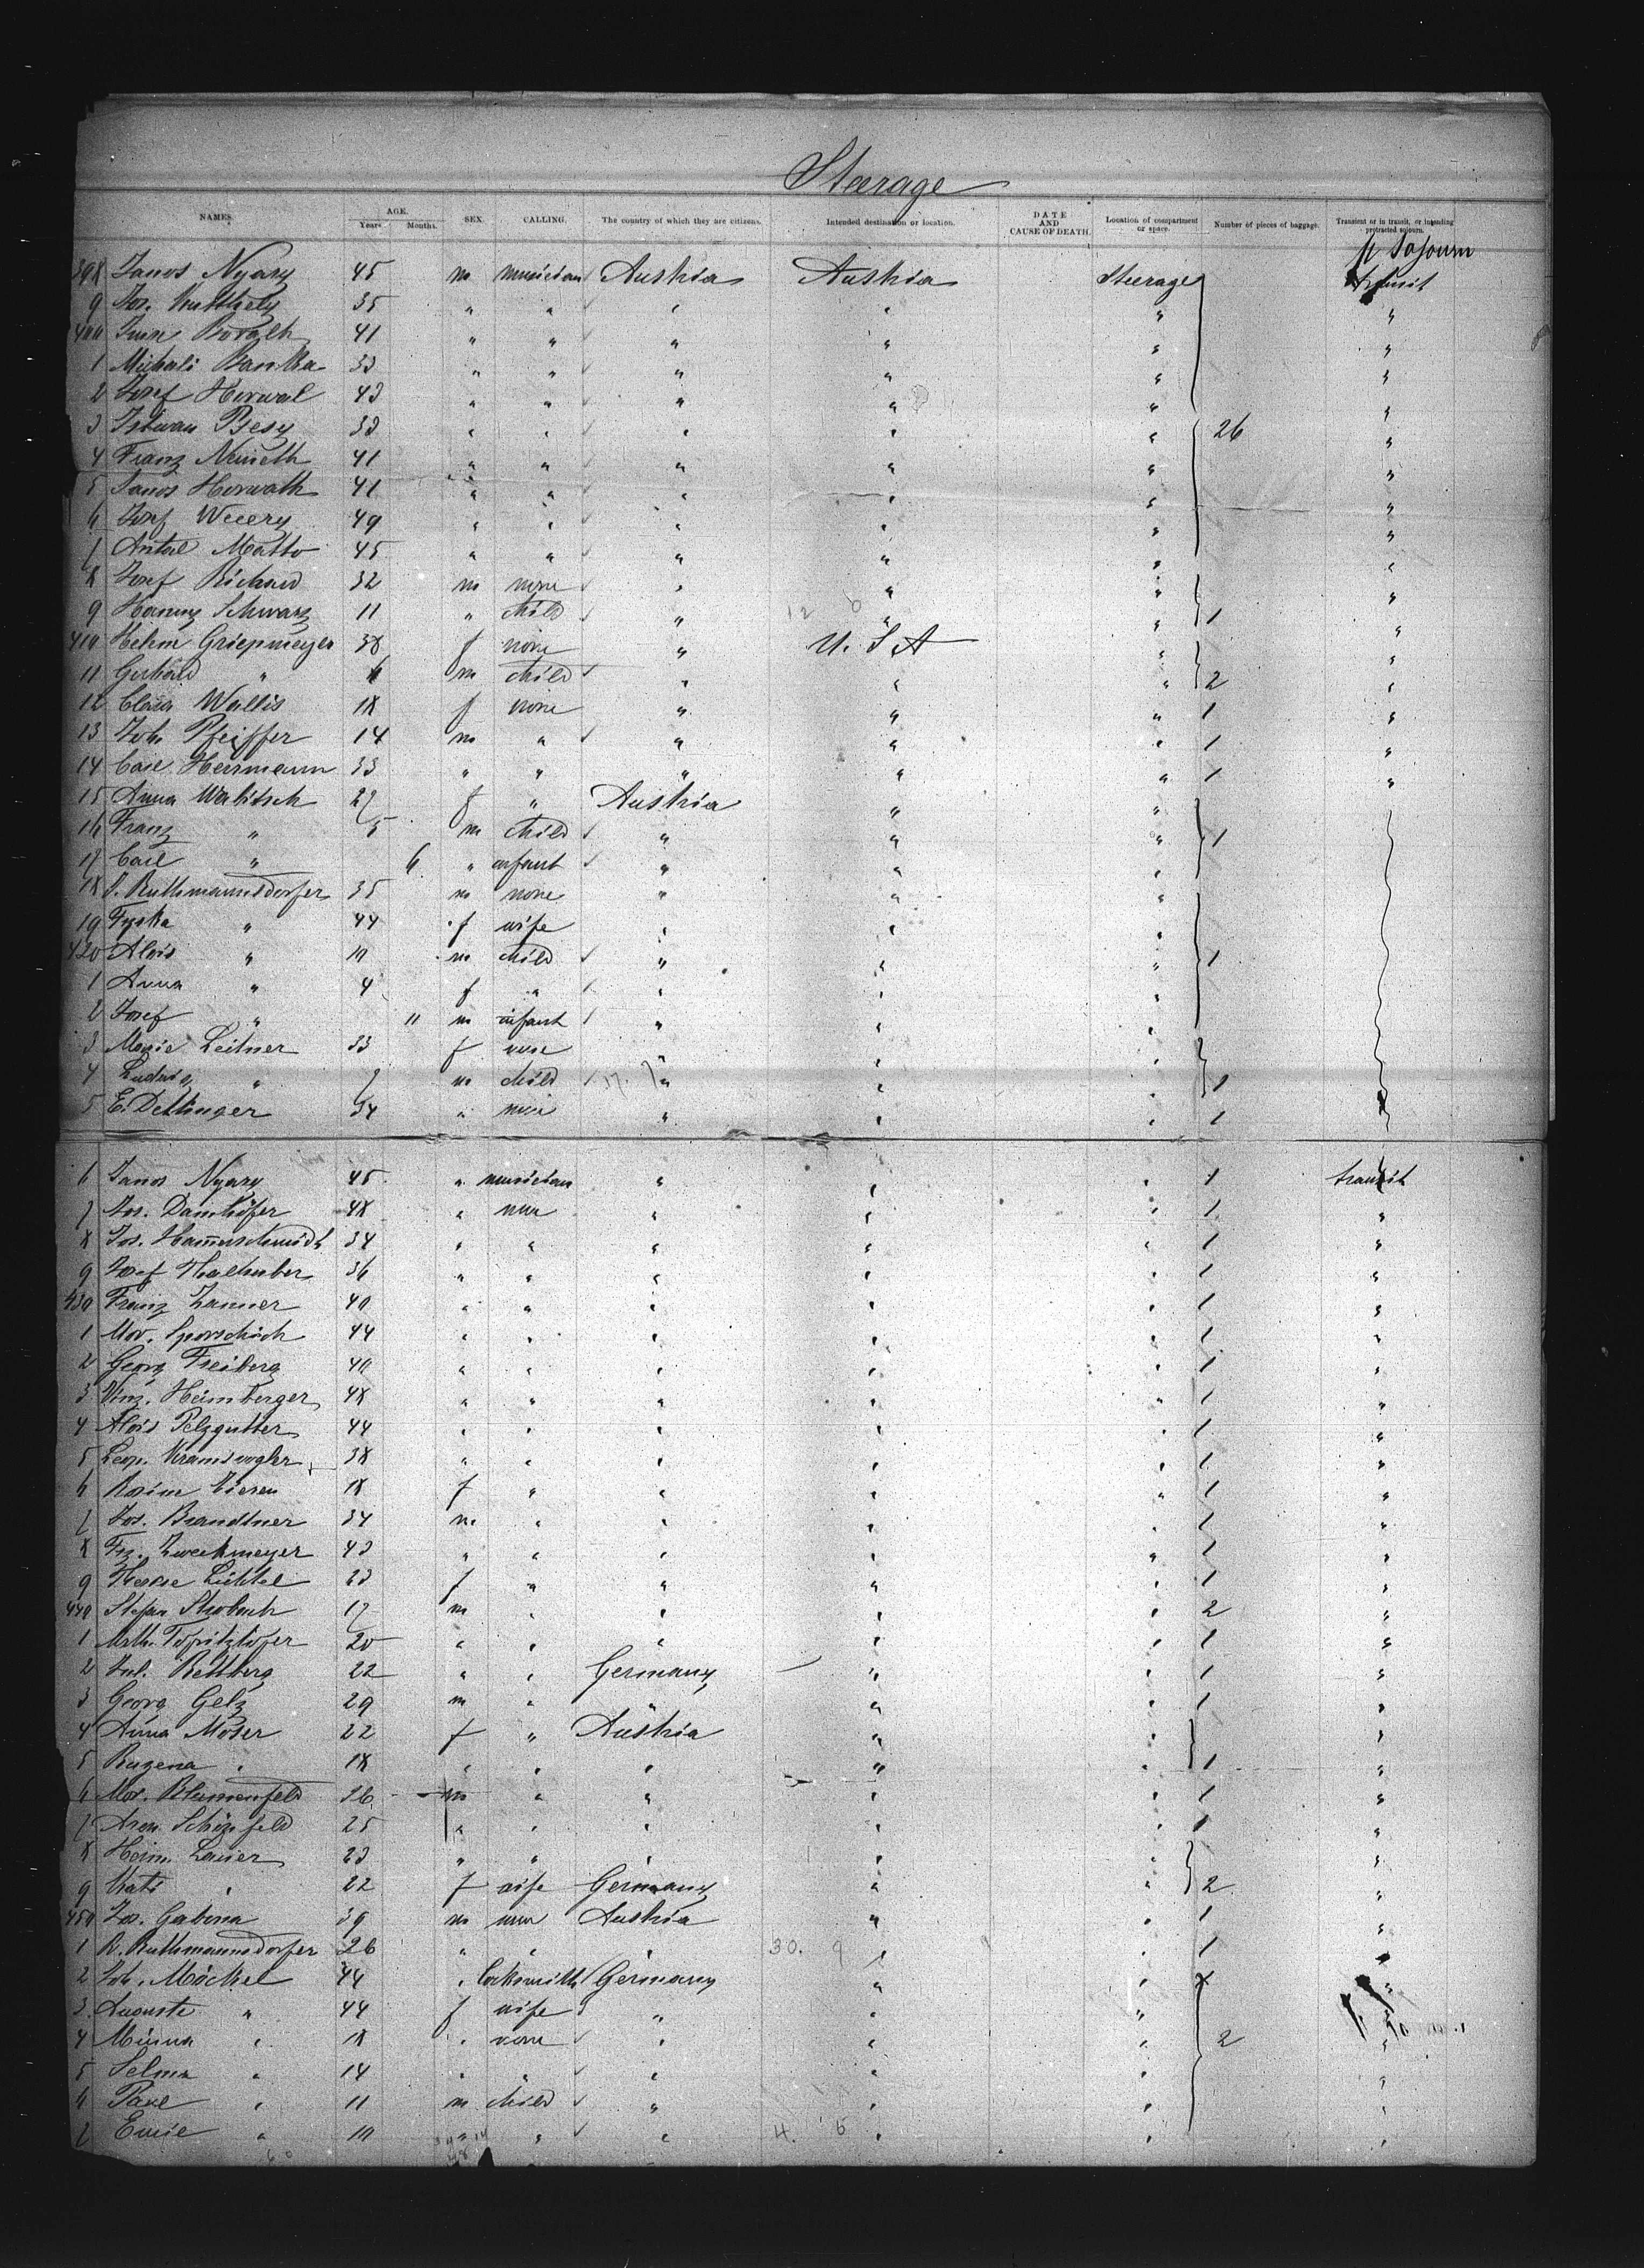 Steerage
NAMES. AGE. Years Months. SEX. CALLING. The country of which they are citizens. Intended destination or location. DATE AND CAUSE OF DEATH. Location of compartment or space. Number of pieces of baggage. Transient or in transit, or intending protracted sojourn.
Sojourn
398 Janos Nyary 45 m musician Austria Austria Steerage transit
9 Jos. 35 " " " " " "
400 41 " " " " " "
1 Michali Banka 33 " " " " " "
2 Josef Horwal 43 " " " " " "
3 Istwan Besy 33 " " " " " 26 "
4 Franz Németh 41 " " " " " "
5 Janos Horwath 41 " " " " " "
6 Josef 49 " " " " " "
7 Antal Matto 45 " " " " " "
8 Josef Richard 32 m none " " " "
9 Schwarz 11 " child " " " 1 "
410 Griepmeyer 38 f none " U.S.A " "
11 Gerhard " 6 m child " " " 2 "
12 Clara Wallis 18 f none " " " 1 "
13 Joh. Pfeiffer 14 m " " " " 1 "
14 Carl Herrmann 33 " " " " " 1 "
15 Anna Walitsch 27 f " Austria " "
16 Franz " 5 m child " " " 1
17 Carl " 6 " infant " " "
18 J. Ruthmannsdorfer 35 m none " " "
19 " 44 f wife " " "
420 Alois " 10 m child " " " 1
1 Anna " 4 f " " " "
2 Josef " 11 m infant " " "
3 Marie Leitner 33 f none " " "
4 Ludwig " 7 m child " " " 1
5 E. Dettinger 34 " none " " " 1
6 Janos Nyary 45 " musician " " " 1 transit
7 Jos. Damhöfer 48 " none " " " 1 "
8 Jos. Hammerschmidt 34 " " " " " 1 "
9 Josef Thalhuber 36 " " " " " 1 "
430 Franz Zanner 40 " " " " " 1 "
1 Mor. 44 " " " " " 1 "
2 Georg Freiberg 40 " " " " " 1 "
3 Vinz. Heimberger 48 " " " " " 1 "
4 Alois Pelzgutter 44 " " " " " 1 "
5 Leop. Kramsvogler 38 " " " " " 1 "
6 Rosine 18 f " " " " 1 "
7 Jos. Brandtner 34 m " " " " 1 "
8 Frz. Zweckmeyer 43 " " " " " 1 "
9 23 f " " " " 1 "
440 Stefan Strobach 17 m " " " " 2 "
1 Math. 20 " " " " " 1 "
2 Jul. Rettberg 22 " " Germany " " 1 "
3 Georg Gelz 29 m " " " " 1 "
4 Anna Moser 22 f " Austria " " "
5 Ruzena " 18 " " " " " 1 "
6 Mor. Blumenfeld 26 m " " " " 1 "
7 Aron Schönfeld 25 " " " " " 1 "
8 Heim. Lauer 23 " " " " " "
9 Kati " 22 f wife Germany " " 2 "
450 Jos. Gabona 39 m none Austria " " 1 "
1 R. Ruthmannsdorfer 26 " " " 30. 9 " " 1 "
2 Joh. Möckel 44 " locksmith Germany " " "
3 Auguste " 44 f wife " " " "
4 Minna " 18 " none " " " 2 "
5 Selma " 14 " " " " " "
6 Paul " 11 m child " " " "
7 Emil " 10 " " " 4. 6 " " "